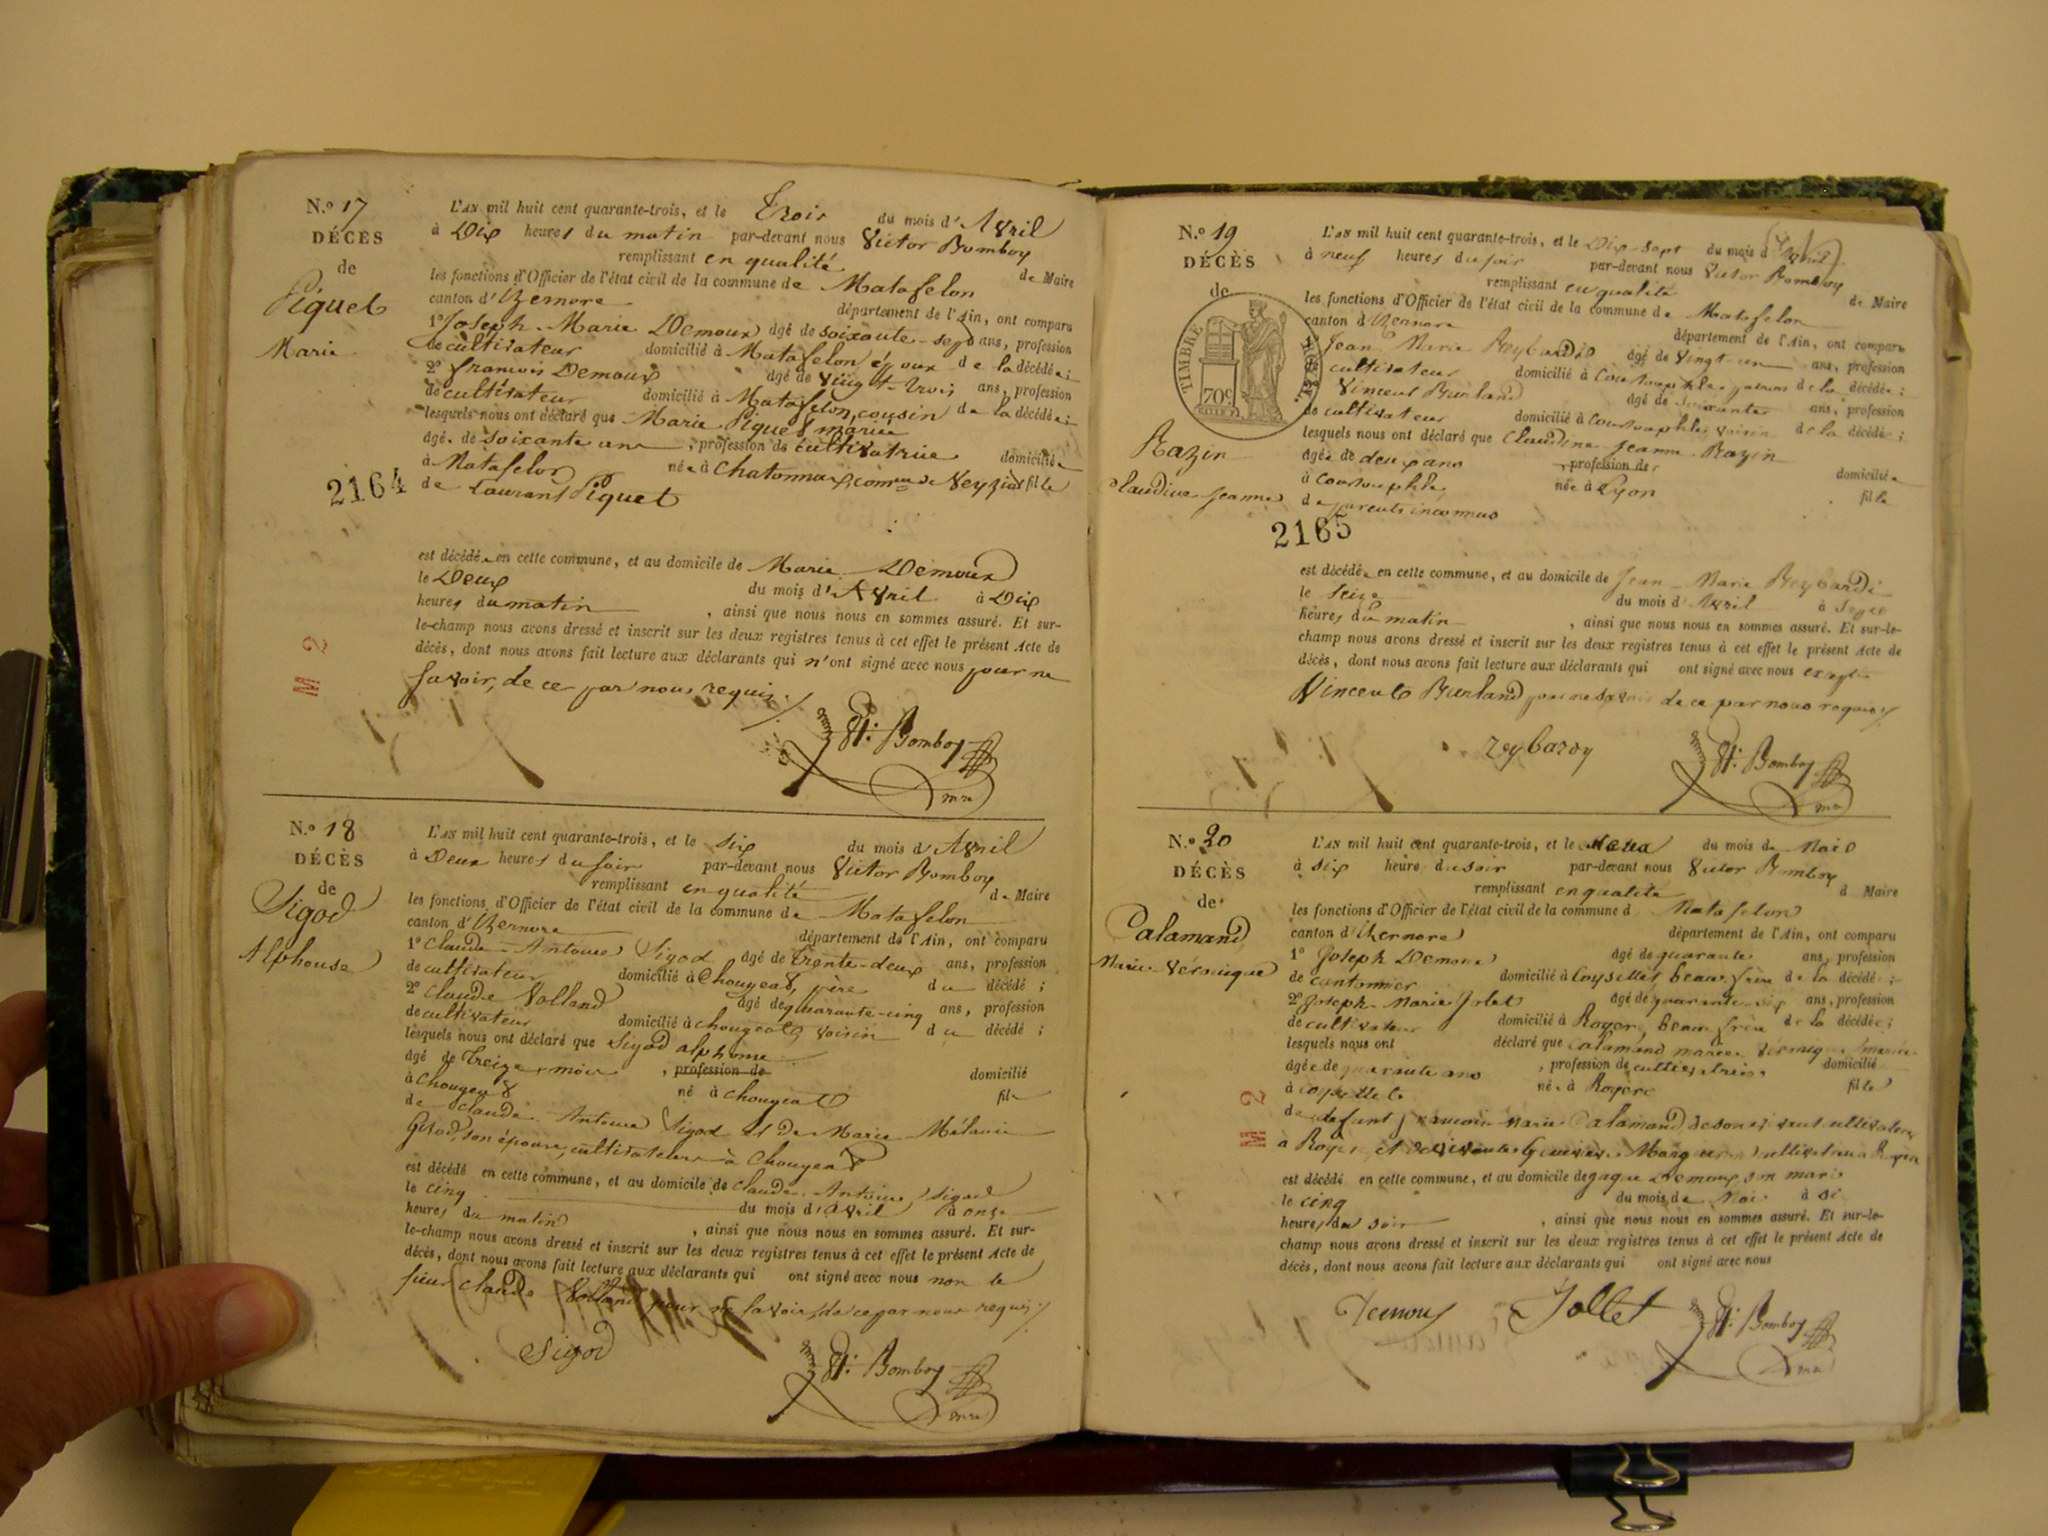 N.º 17
DÉCÈS
de
Piquet
Marie
2164
M 2
L'AN mil huit cent quarante-trois, et le Trois du mois d'Avril
à Dix heures du matin par-devant nous Victor Bomboy
remplissant en qualité de Maire
les fonctions d'Officier de l'état civil de la commune de Matafelon
canton d'Izernore département de l'Ain, ont comparu
1º Joseph-Marie Demoux âgé de soixante-sept ans, profession
de cultivateur domicilié à Matafelon époux de la décédée;
2º francois Demoux âgé de vingt-trois ans, profession
de cultivateur domicilié à Matafelon, cousin de la décédée;
lesquels nous ont déclaré que Marie Piquet mariée
âgée de soixante ans, profession de cultivatrice domiciliée
à Matafelon née à Chatonnax, comune de Veyziat fille
de Laurent Piquet
est décédée en cette commune, et au domicile de Marie Demoux
le Deux du mois d'Avril à Dix
heures du matin, ainsi que nous nous en sommes assuré. Et sur-
le-champ nous avons dressé et inscrit sur les deux registres tenus à cet effet le présent Acte de
décès, dont nous avons fait lecture aux déclarants qui n'ont signé avec nous pour ne
savoir, de ce par nous requis
Vr. Bomboy
mre
N.º 18
DÉCÈS
de
Sigod
Alphonse
L'AN mil huit cent quarante-trois, et le six du mois d'Avril
à Deux heures du soir par-devant nous Victor Bomboy
remplissant en qualité de Maire
les fonctions d'Officier de l'état civil de la commune de Matafelon
canton d'Izernore département de l'Ain, ont comparu
1º Claude-Antoine Sigod âgé de Trente-deux ans, profession
de cultivateur domicilié à Chougeat, père du décédé;
2º Claude Volland âgé de quarante-cinq ans, profession
de cultivateur domicilié à chougeat voisin du décédé;
lesquels nous ont déclaré que Sigod alphonse
âgé de Treize mois, profession de domicilié
à Chougeat né à chougeat fils
de Claude-Antoine Sigod et de Marie Mélanie
Girod, son épouse, cultivateurs à Chougeat
est décédé en cette commune, et au domicile de Claude-Antoine Sigod
le cinq du mois d'avril à onze
heures du matin, ainsi que nous nous en sommes assuré. Et sur-
le-champ nous avons dressé et inscrit sur les deux registres tenus à cet effet le présent Acte de
décès, dont nous avons fait lecture aux déclarants qui ont signé avec nous non le
sieur Claude Volland pour ne savoir, de ce par nous requis
Sigod
Vr. Bomboy
mre
N.º 19
DÉCÈS
de
TIMBRE ROYAL
70c
Razin
Claudine Jeanne
2165
L'AN mil huit cent quarante-trois, et le Dix-sept du mois d'Avril
à neuf heures du soir par-devant nous Victor Bomboy
remplissant en qualité de Maire
les fonctions d'Officier de l'état civil de la commune de Matafelon
canton d'Izernore département de l'Ain, ont comparu
Jean Marie Reybardi âgé de vingt-un ans, profession
cultivateur domicilié à de la décédée;
Vincent Burland âgé de soixante ans, profession
de cultivateur domicilié à voisin de la décédée;
lesquels nous ont déclaré que Claudine Jeanne Razin
âgée de deux ans, profession de domiciliée
à née à Lyon fille
de parents inconnus
est décédée en cette commune, et au domicile de Jean-Marie Reybardi
le seize du mois d'Avril à
heures du matin, ainsi que nous nous en sommes assuré. Et sur-le-
champ nous avons dressé et inscrit sur les deux registres tenus à cet effet le présent Acte de
décès, dont nous avons fait lecture aux déclarants qui ont signé avec nous excepté
Vincent Burland pour ne savoir de ce par nous requis
reybardy
Vr. Bomboy
mre
N.º 20
DÉCÈS
de
Calamand
Marie-Véronique
M 2
L'AN mil huit cent quarante-trois, et le du mois de Mai
à six heures du soir par-devant nous Victor Bomboy
remplissant en qualité d Maire
les fonctions d'Officier de l'état civil de la commune d Matafelon
canton d'Izernore département de l'Ain, ont comparu
1º Joseph Demoux âgé de quarante ans, profession
de cantonnier domicilié à Coysellet, beau-frère de la décédée;
2º Joseph-Marie Jolet âgé de quarante-six ans, profession
de cultivateur domicilié à beau frère de la décédée;
lesquels nous ont déclaré que Calamand marie Véronique mariée
âgée de quarante ans, profession de cultivatrice domicilié
à née à fille
de défunt Marie Calamand de son vivant cultivateur
à et de vivante
est décédé en cette commune, et au domicile de Demoux son mari
le cinq du mois de Mai à si
heures du soir, ainsi que nous nous en sommes assuré. Et sur-le-
champ nous avons dressé et inscrit sur les deux registres tenus à cet effet le présent Acte de
décès, dont nous avons fait lecture aux déclarants qui ont signé avec nous
Demoux Jollet
Vr. Bomboy
mre